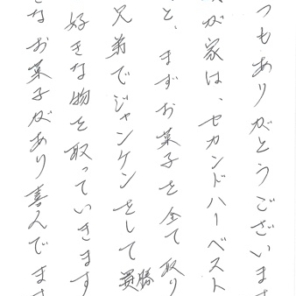 つもありがとうございます
が家は、セカンドハーベスト
と、まずお菓子を全て取り
兄弟でジャンケンをして勝
好きな物を取っていきます
なお菓子があり喜んでます